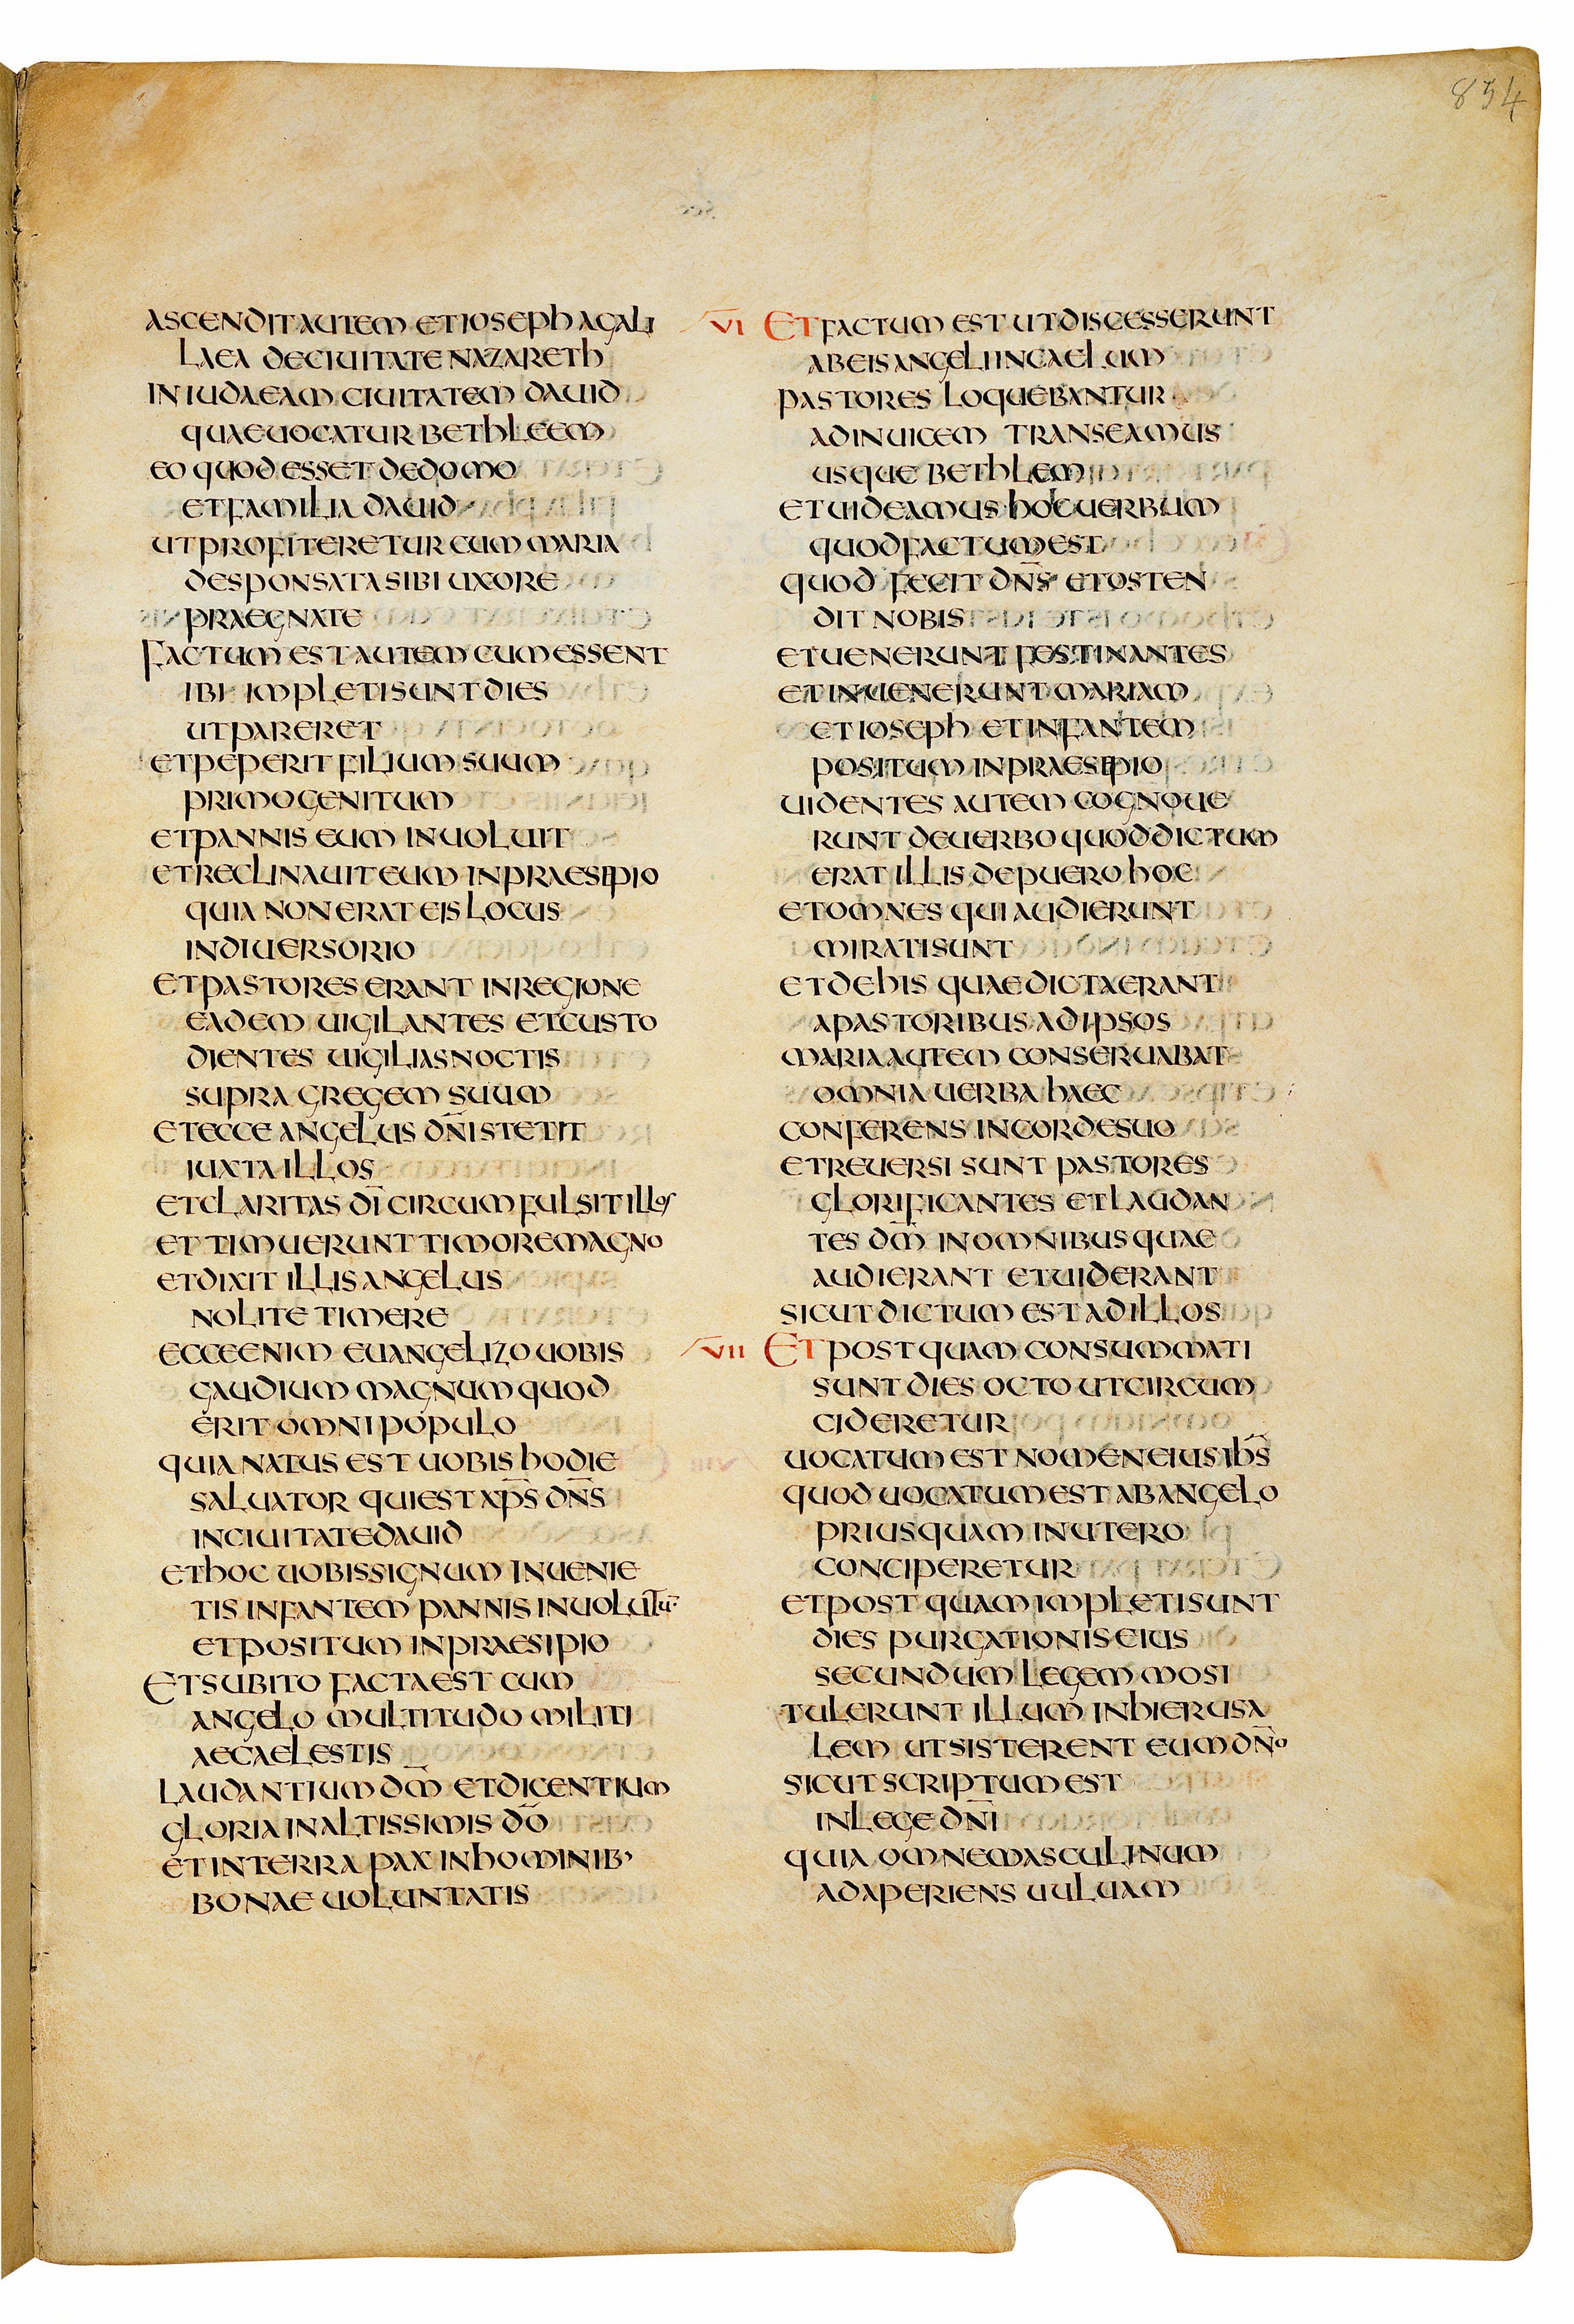 834
ASCENDITAUTEM ETIOSEPH AGALI
LAEA DECIUITATE NAZARETH
IN IUDAEAM CIUITATEM DAUID
QUAEUOCATUR BETHLEEM
EO QUOD ESSET DEDOMO
ETFAMILIA DAUID
UTPROFITERETUR CUM MARIA
DESPONSATA SIBI UXORE
PRAEGNATE
FACTUM EST AUTEM CUM ESSENT
IBI IMPLETI SUNT DIES
UTPARERET
ETPEPERIT FILIUM SUUM
PRIMOGENITUM
ETPANNIS EUM INUOLUIT
ETRECLINAUIT EUM INPRAESEPIO
QUIA NON ERAT EIS LOCUS
INDIUERSORIO
ETPASTORES ERANT INREGIONE
EADEM UIGILANTES ETCUSTO
DIENTES UIGILIAS NOCTIS
SUPRA GREGEM SUUM
ETECCE ANGELUS DN̄I STETIT
IUXTA ILLOS
ETCLARITAS DĪ CIRCUMFULSIT ILLOS
ET TIMUERUNT TIMORE MAGNO
ETDIXIT ILLIS ANGELUS
NOLITE TIMERE
ECCEENIM EUANGELIZO UOBIS
GAUDIUM MAGNUM QUOD
ERIT OMNI POPULO
QUIA NATUS EST UOBIS HODIE
SALUATOR QUIEST XP̄S DN̄S
INCIUITATEDAUID
ETHOC UOBISSIGNUM INUENIE
TIS INFANTEM PANNIS INUOLUTŪ
ETPOSITUM INPRAESIPIO
ETSUBITO FACTAEST CUM
ANGELO MULTITUDO MILITI
AECAELESTIS
LAUDANTIUM DM̄ ETDICENTIUM
GLORIA INALTISSIMIS DŌ
ETINTERRA PAX INHOMINIB'
BONAE UOLUNTATIS
VI ETFACTUM EST UTDISCESSERUNT
ABEIS ANGELI INCAELUM
PASTORES LOQUEBANTUR
ADINUICEM TRANSEAMUS
USQUE BETHLEM
ETUIDEAMUS HOC UERBUM
QUODFACTUMEST
QUOD FECIT DN̄S ETOSTEN
DIT NOBIS
ETUENERUNT FESTINANTES
ETINUENERUNT MARIAM
ETIOSEPH ETINFANTEM
POSITUM INPRAESEPIO
UIDENTES AUTEM COGNOUE
RUNT DEUERBO QUODDICTUM
ERAT ILLIS DEPUERO HOC
ETOMNES QUI AUDIERUNT
MIRATISUNT
ETDEHIS QUAEDICTAERANT
APASTORIBUS ADIPSOS
MARIA AUTEM CONSERUABAT
OMNIA UERBA HAEC
CONFERENS INCORDESUO
ETREUERSI SUNT PASTORES
GLORIFICANTES ETLAUDAN
TES DM̄ INOMNIBUS QUAE
AUDIERANT ETUIDERANT
SICUT DICTUM EST ADILLOS
VII ETPOSTQUAM CONSUMMATI
SUNT DIES OCTO UTCIRCUM
CIDERETUR
UOCATUM EST NOMEN EIUS IHS̄
QUOD UOCATUMEST ABANGELO
PRIUSQUAM INUTERO
CONCIPERETUR
ETPOST QUAM IMPLETISUNT
DIES PURGATIONIS EIUS
SECUNDUM LEGEM MOSI
TULERUNT ILLUM INHIERUSA
LEM UTSISTERENT EUM DN̄O
SICUT SCRIPTUM EST
INLEGE DN̄I
QUIA OMNEMASCULINUM
ADAPERIENS UULUAM